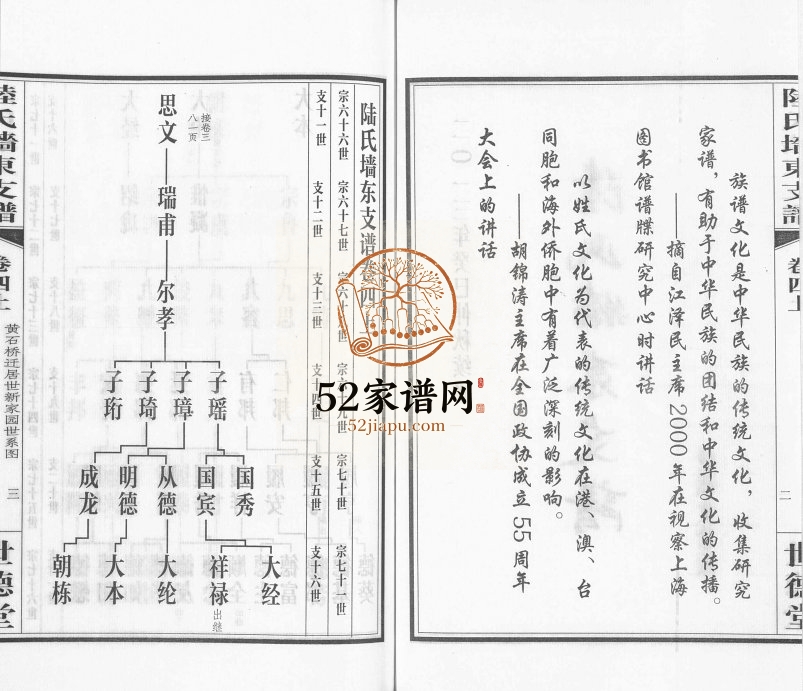 陸氏墙東支譜
卷四上
二
世德堂
族谱文化是中华民族的传统文化，收集研究
家谱，有助于中华民族的团结和中华文化的传播。
——摘自江泽民主席2000年在视察上海
图书馆谱牒研究中心时讲话
以姓氏文化为代表的传统文化在港、澳、台
同胞和海外侨胞中有着广泛深刻的影响。
——胡锦涛主席在全国政协成立55周年
大会上的讲话
陆氏墙东支谱卷四上
宗六十六世 宗六十七世 宗六十八世 宗六十九世 宗七十世 宗七十一世
支十一世 支十二世 支十三世 支十四世 支十五世 支十六世
接卷三
八一页
思文
瑞甫
尔孝
子瑶
子璋
子琦
子珩
国秀
国宾
从德
明德
成龙
大经
祥禄 出继
大纶
大本
朝栋
陸氏墙東支譜
卷四上
黄石桥迁居世新家园世系图
三
世德堂
52家谱网
52jiapu.com